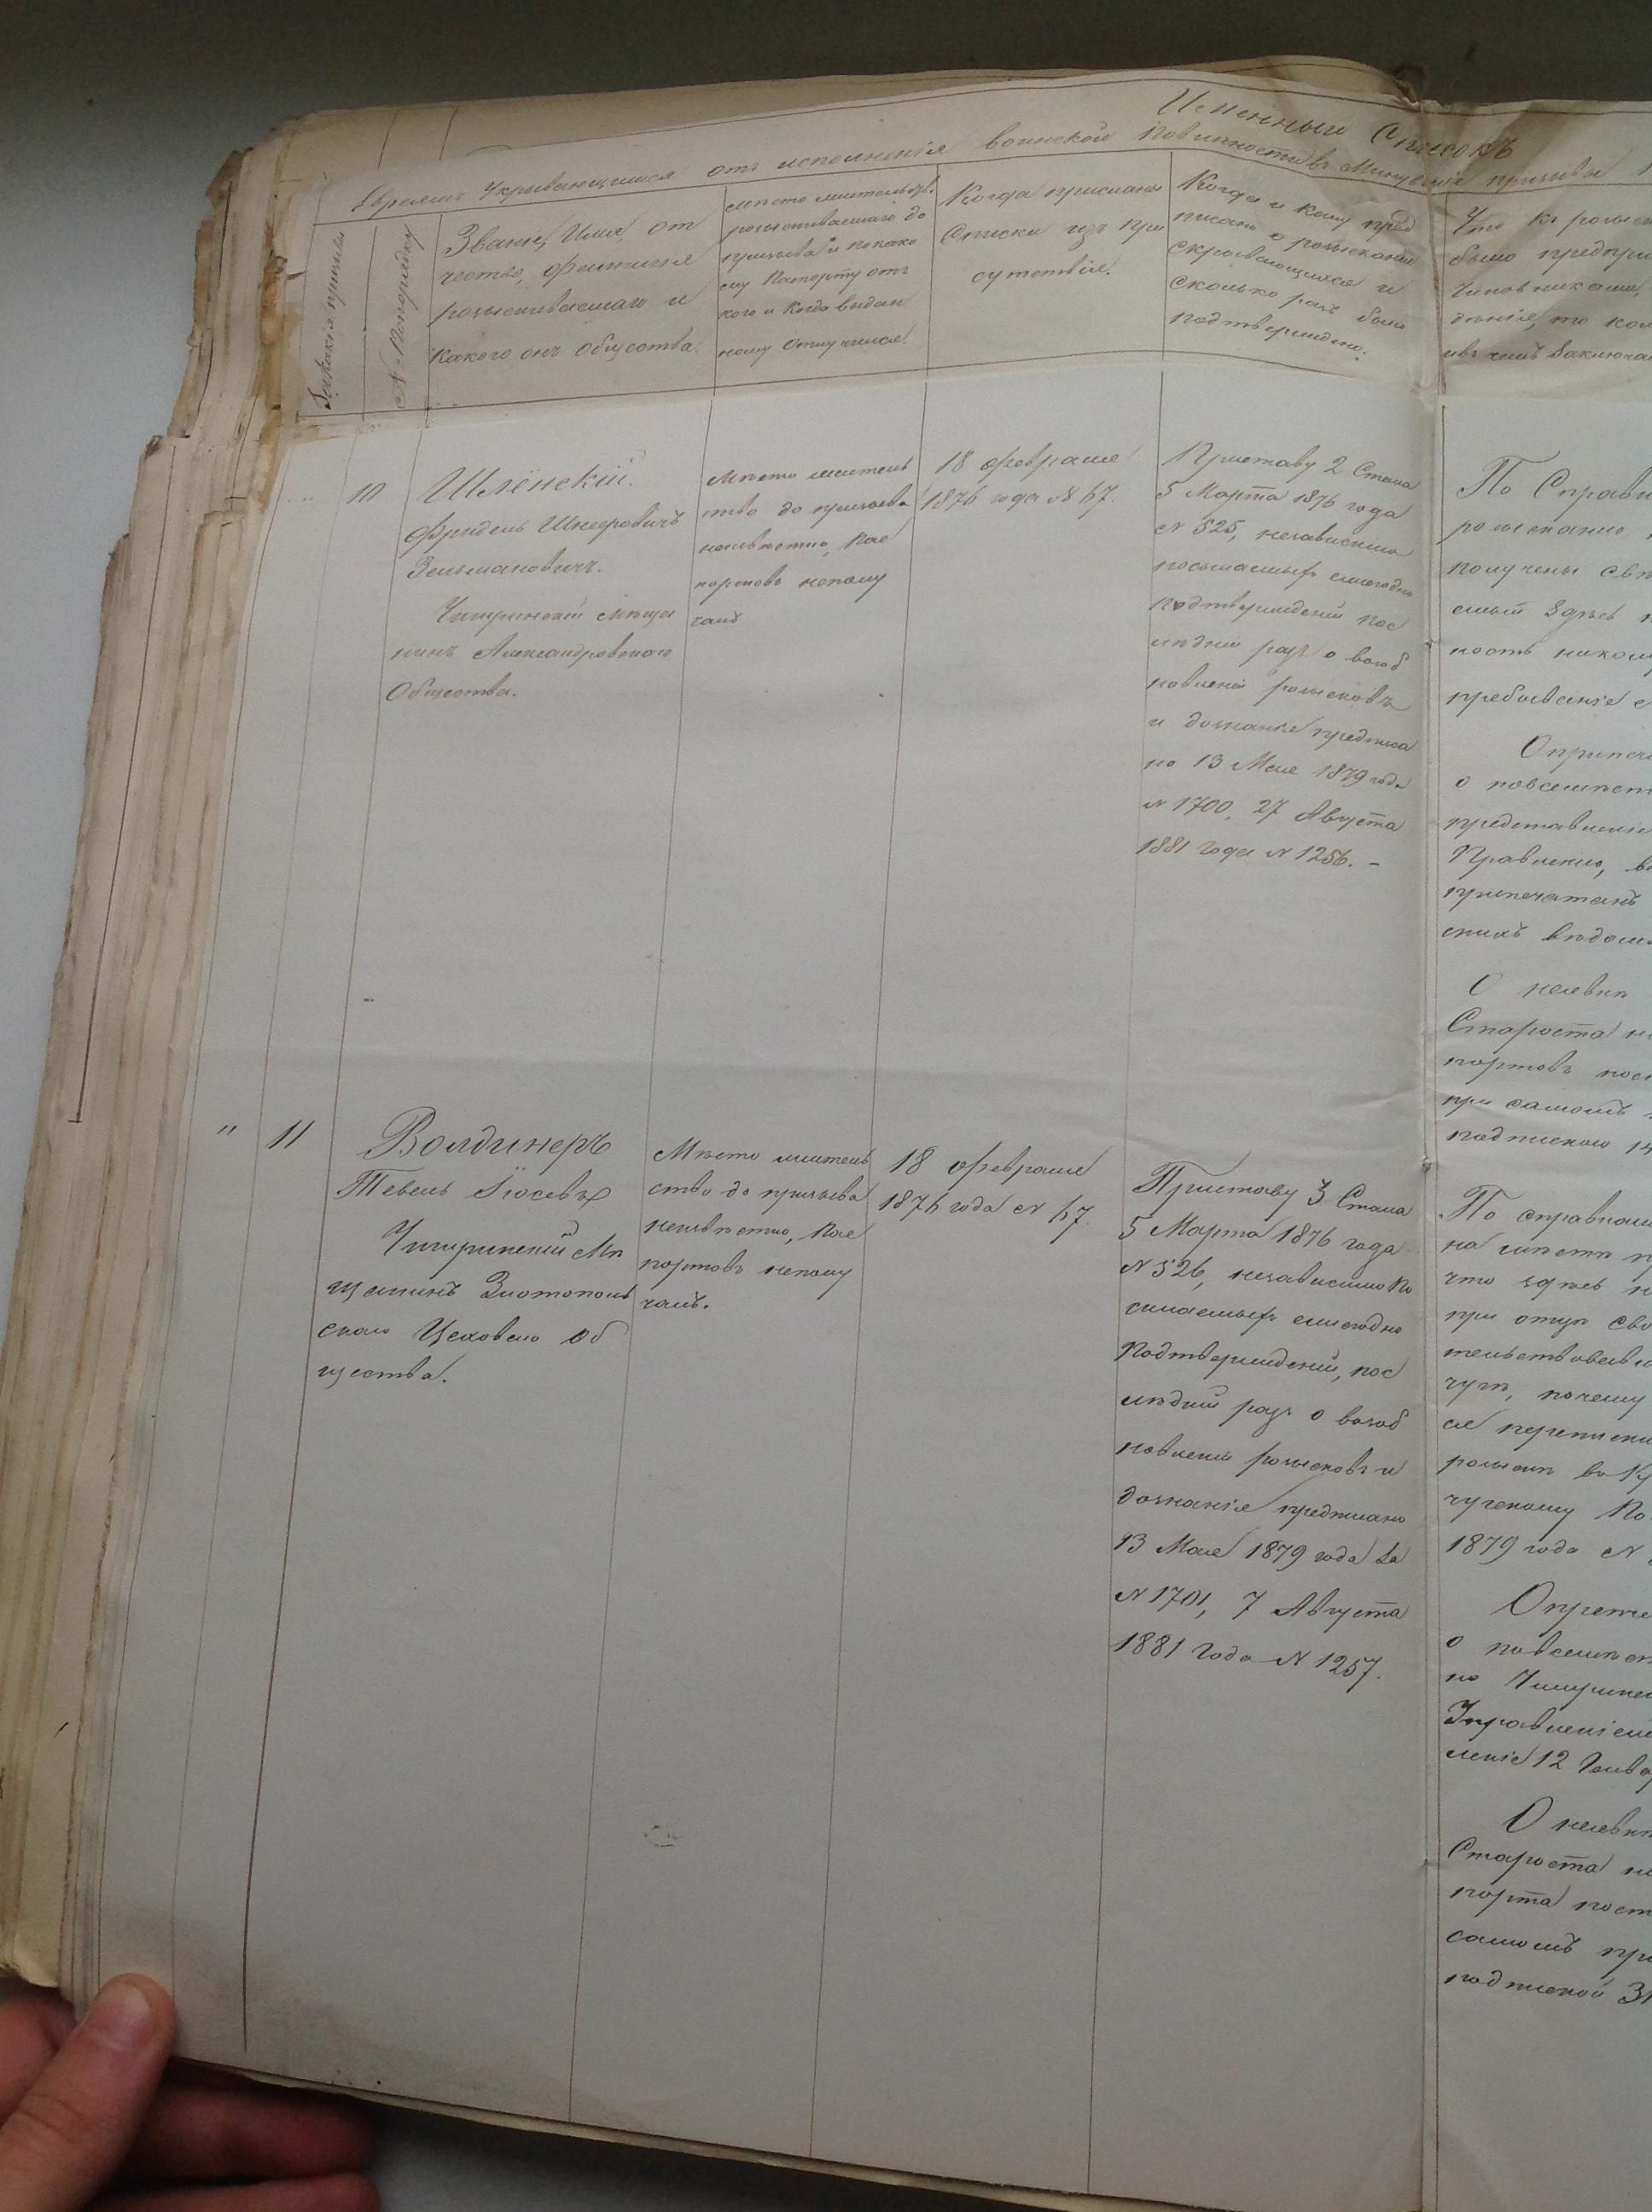 Именный Списокъ
Евреямъ Укрывающимся отъ исполненія воинской повинности въ Минувшіе призывы
За какіе призывы
№ По порядку
Званіе, Имя, от
чество, фамилія
розыскиваемаго и
какого онъ общества.
Мѣсто жительства
розыскиваемаго до
призыва и по како
му Паспорту отъ
кого и когда выдан
ному отлучился.
Когда присланы
списки изъ При
сутствія.
Когда и кому пред
писано о розысканіи
скрывающихся и
сколько разъ было
подтверждено.
Что къ розыск
было предпри
чиновниками,
то ко
и въ чемъ заключа
10
Шлёнскій.
Фридель Шнееровичъ
Зельмановичъ.
Чигиринскій мѣща
нинъ Александровскаго
Общества.
Мѣсто житель
ство до призыва
неизвѣстно, Пас
портовъ неполу
чалъ
18 февраля
1876 года № 67.
Приставу 2 Стана
5 Марта 1876 года
№ 525, независимо
посылаемыхъ ежегодно
подтвержденій пос
лѣдній разъ о возоб
новленіи розысковъ
и дознанія предписа
но 13 Мая 1879 года
№ 1700, 27 Августа
1881 года № 1256. –
По Справк
розысканію
получены свѣ
емый здѣсь н
ность никому
пребываніе е
Опрiпеч
о повсемѣст
представленіе
Правленію, в
припечатанъ
скихъ вѣдом
О неявк
Староста н
портовъ пос
при самомъ
подпискою 14
" 11
Волдинеръ
Тевель Іосевъ
Чигиринскій Мѣ
щанинъ Златополь
скаго Цеховаго Об
щества.
Мѣсто житель
ство до призыва
неизвѣстно, Пас
портовъ неполу
чалъ.
18 февраля
1876 года № 67.
Приставу 3 Стана
5 Марта 1876 года
№ 526, независимо по
сылаемыхъ ежегодно
подтвержденій, пос
лѣдній разъ о возоб
новленіи розысковъ и
дознанія предписано
13 Мая 1879 года за
№ 1701, 7 Августа
1881 года № 1257.
По справкам
на мѣстѣ п
что здѣсь н
при отцѣ сво
тельствовавш
чугѣ, почему
ся переписк
розыскѣ въ Кр
чугскому По
1879 года №
О припе
о повсемѣст
но Чигиринск
Управленіем
леніе 12 Янва
О неявк
Староста н
порта пост
самомъ при
подпиской 31